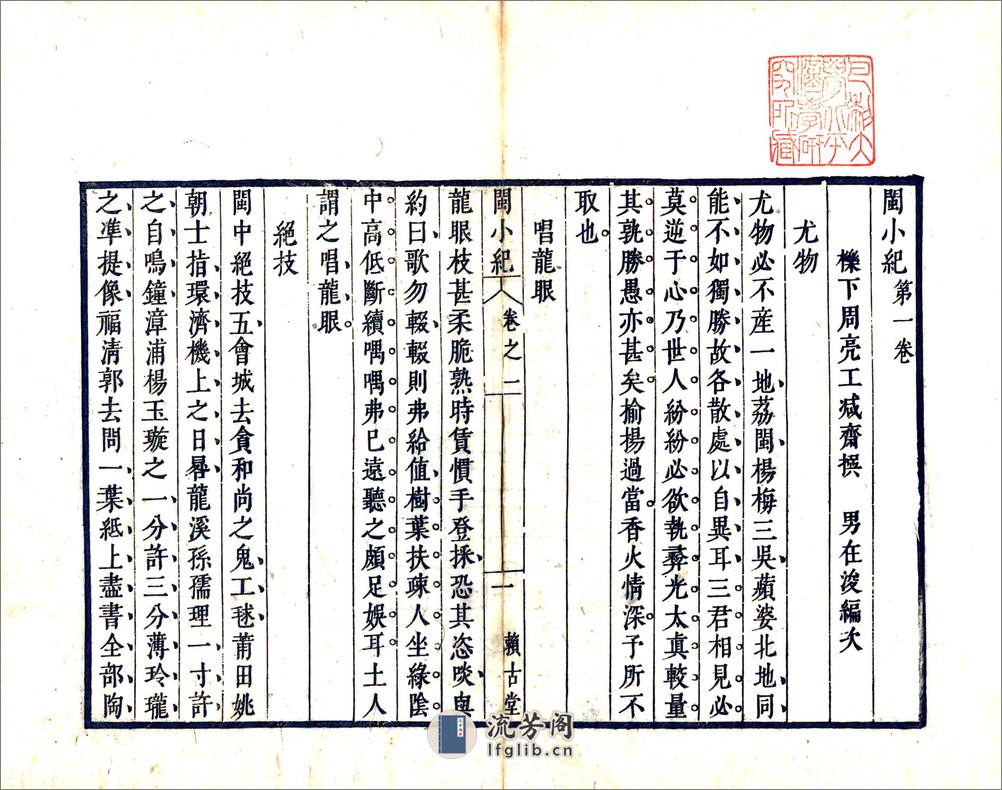 閩小紀第一卷
櫟下周亮工減齋撰　男在浚編次
尤物
尤物必不産一地荔閩楊梅三吳蘋婆北地同
能不如獨勝故各散處以自異耳三君相見必
莫逆于心乃世人紛紛必欲執彛光太眞較量
其孰勝愚亦甚矣揄楊過當香火情深予所不
取也
唱龍眼
閩小紀　卷之一　一　賴古堂
龍眼枝甚柔脆熟時賃慣手登採恐其恣啖與
約曰歌勿輟輟則弗給值樹葉扶疎人坐綠陰
中高低斷續喁喁弗已遠聽之頗足娛耳土人
謂之唱龍眼
絕技
閩中絕技五會城去貪和尚之鬼工毬莆田姚
朝士指環濟機上之日晷龍溪孫孺理一寸許
之自鳴鐘漳浦楊玉璇之一分許三分薄玲瓏
之準提像福淸郭去問一葉紙上盡書全部陶
流芳阁
lfglib.cn